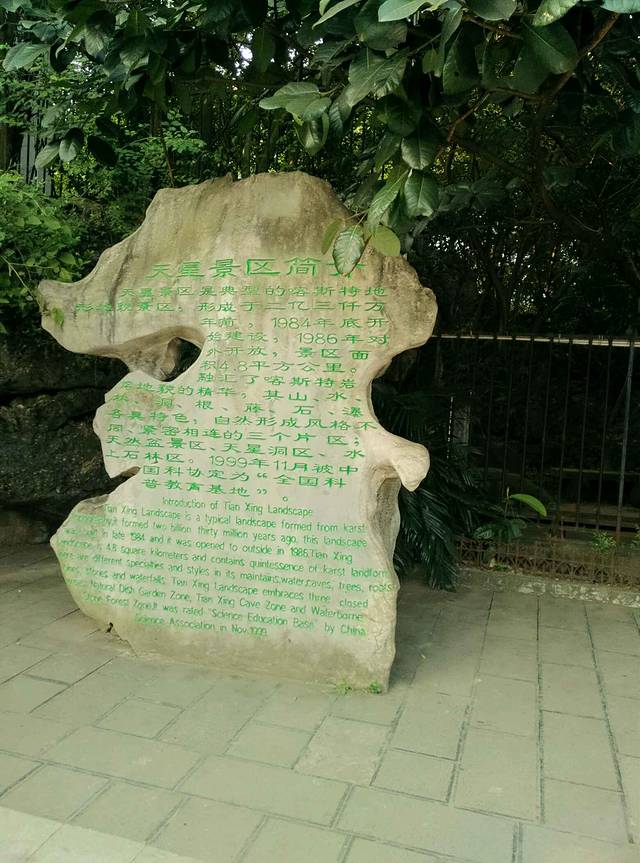 天星景区简
天星景区是典型的喀斯特地
形地貌景区，形成于二亿三仟万
年前，1984年底开
始建设，1986年对
外开放，景区面
积4.8平方公里。
融汇了喀斯特岩
溶地貌的精华，其山、水、
林、洞、根、藤、石、瀑
各具特色，自然形成风格不
同、紧密相连的三个片区；
天然盆景区、天星洞区、水
上石林区。1999年11月被中
国科协定为“全国科
普教育基地”。
Introduction of Tian Xing Landscape
Tian Xing Landscape is a typical landscape formed from karst
formed two billion thirty million years ago, this landscape
in late 1984 and it was opened to outside in 1986.Tian Xing
Landscape is 4.8 square kilometers and contains quintessence of karst landform
are different specialties and styles in its maintains,water,caves, trees, roots
stones and waterfalls. Tian Xing Landscape embraces three closed
Natural Dish Garden Zone, Tian Xing Cave Zone and Waterborne
Stone Forest Zone.It was rated "Science Education Base" by China
Science Association in Nov.1999.